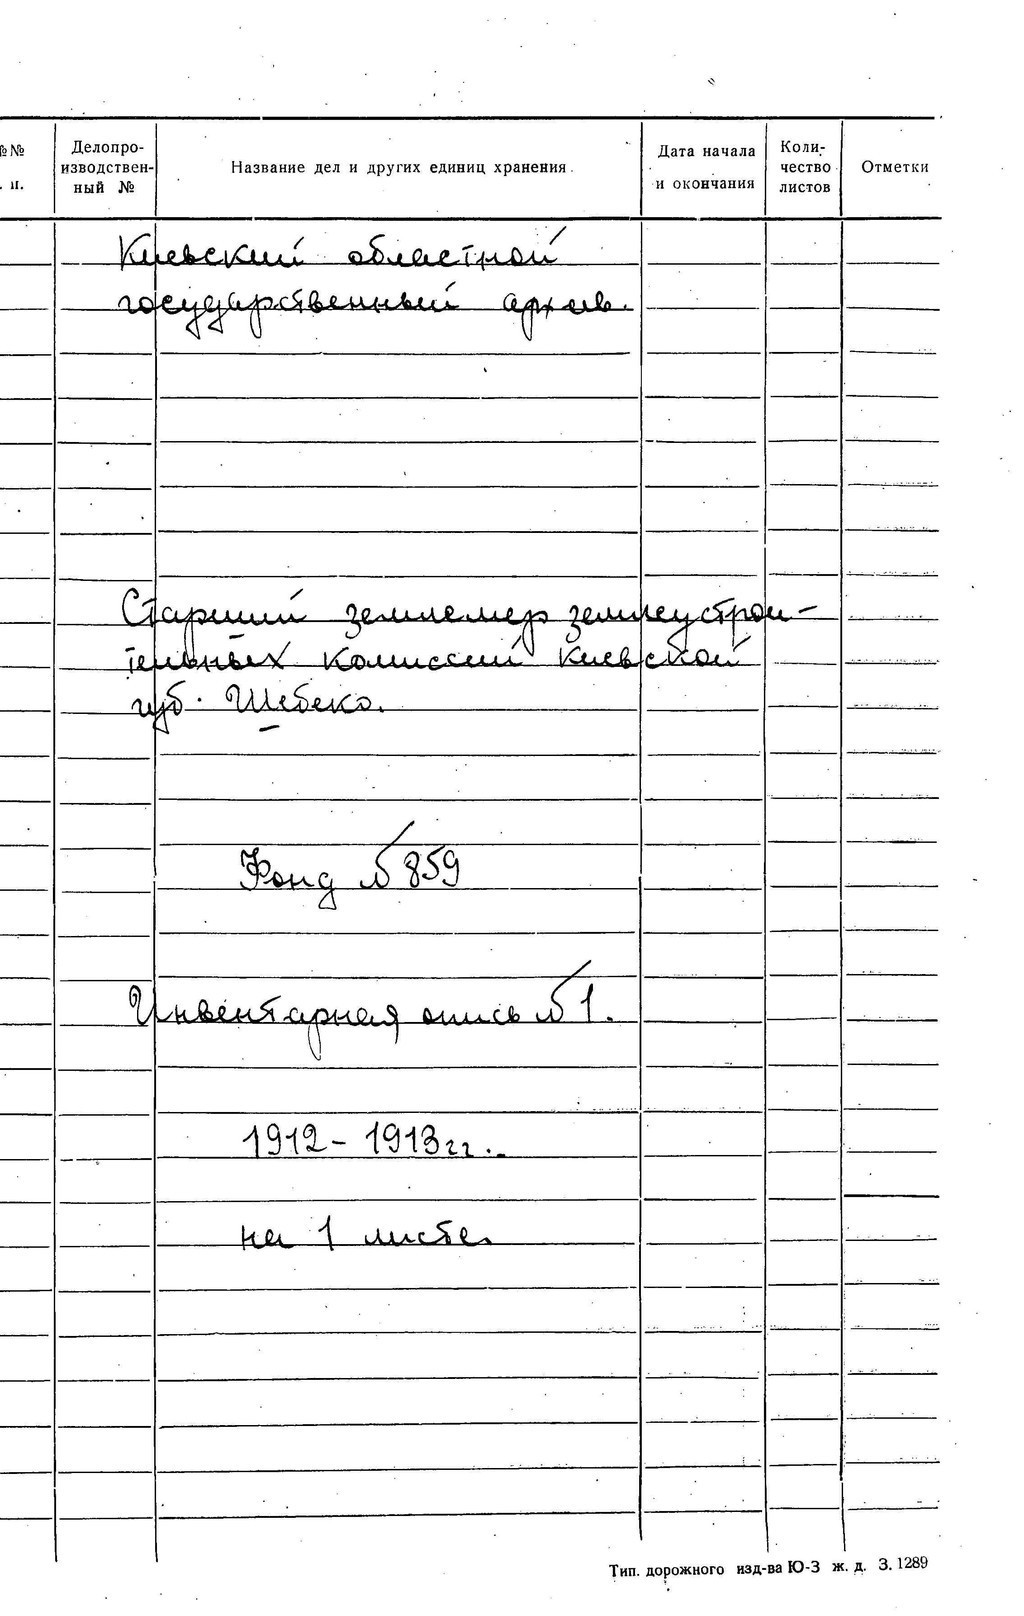 №№
п.
Делопро-
изводствен-
ный №
Название дел и других единиц хранения.
Дата начала
и окончания
Коли-
чество
листов
Отметки
Киевский областной
государственный архив.
Старший землемер землеустрои-
тельных комиссий Киевской
губ. Шебеко.
Фонд № 859
Инвентарная опись № 1.
1912 - 1913 гг.
на 1 листе.
Тип. дорожного изд-ва Ю-З ж. д. З. 1289